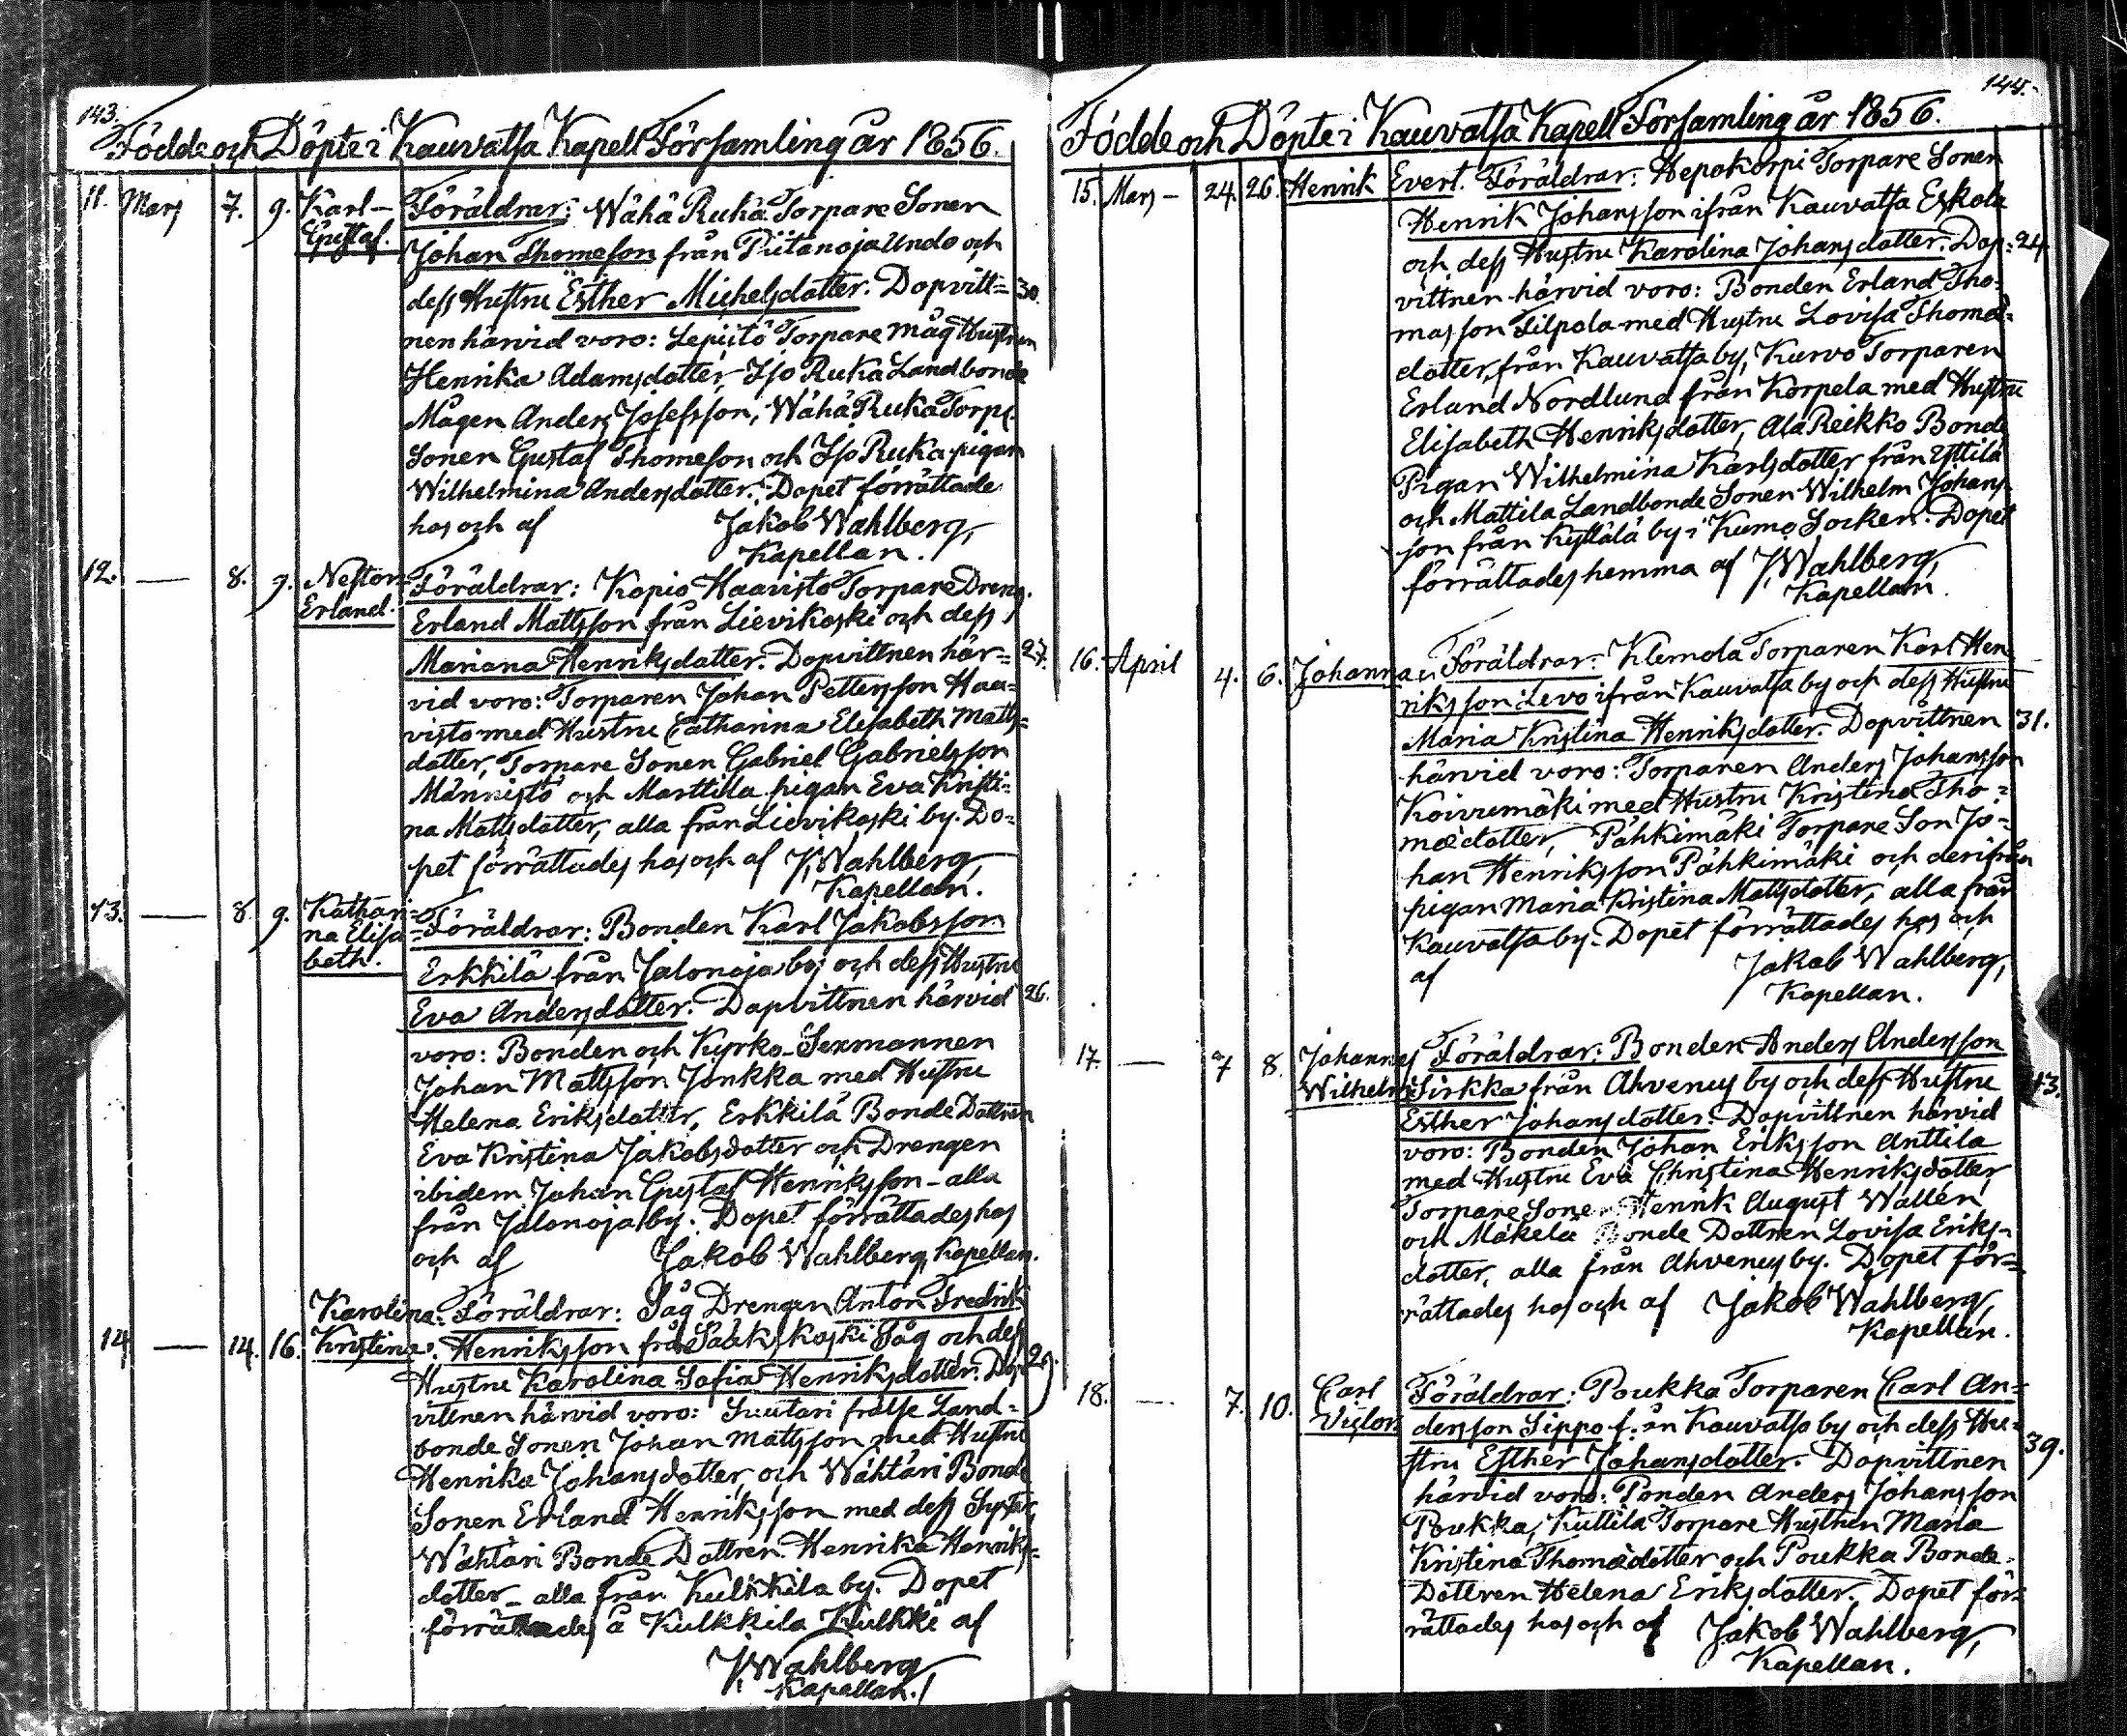 143.
Födde och Döpte i Kauvatsa Kapell Församling år 1856.
11. Mars 7. 9. Karl- Föräldrar: Wähä Ruka Torpare Sonen
Gustaf. Johan Thomeson från Piitänoja Undo och
dess Hustru Esther Michelsdotter. Dopvitt= 30.
nen härvid voro: Lepistö Torpare Måg Hustrun
Henrika Adamsdotter, Iso Ruka Landbonde
Mågen Anders Josefsson, Wähä Ruka Torp.
Sonen Gustaf Thomeson och Iso Ruka pigan
Wilhelmina Andersdotter. Dopet förrättade
hos och af Jakob Wahlberg,
Kapellan.
12. — 8. 9. Nestor Föräldrar: Kopio Haavisto Torpare Dreng.
Erland. Erland Mattsson från Lievikoski och dess
Mariana Henriksdotter. Dopvittnen här= 27.
vid voro: Torparen Johan Pettersson Haa=
visto med Hustru Catharina Elisabeth Matts=
dotter, Torpare Sonen Gabriel Gabrielsson
Männistö och Marttila pigan Eva Kristi=
na Mattsdotter, alla från Lievikoski by. Do=
pet förrättades hos och af J. Wahlberg,
Kapellan.
13. — 8. 9. Kathari=
na Elisa= Föräldrar: Bonden Karl Jakobsson
beth. Erkkilä från Jalonoja by och dess Hustru
Eva Andersdotter. Dopvittnen härvid 26.
voro: Bonden och Kyrko-Sexmannen
Johan Mattsson Jonkka med Hustru
Helena Eriksdotter, Erkkilä Bonde Dottren
Eva Kristina Jakobsdotter och Drengen
ibidem Johan Gustaf Henriksson - alla
från Jalonoja by. Dopet förrättades hos
och af Jakob Wahlberg, Kapellan.
Karolina Föräldrar: Såg Drengen Anton Fredrik
14. — 14. 16. Kristina. Henriksson från Sääkskoski Såg och dess
Hustru Karolina Sofia Henriksdotter. Dop= 29.
vittnen härvid voro: Suutari frälse Land=
bonde Sonen Johan Mattsson med Hustru
Henrika Johansdotter, och Wähtäri Bonde
Sonen Erland Henriksson med dess Syster,
Wähtäri Bonde Dottren Henrika Henriks=
dotter - alla från Kulkkila by. Dopet
förrättades å Kulkkila Kulkki af
J. Wahlberg
Kapellan.
144.
Födde och Döpte i Kauvatsa Kapell Församling år 1856.
15. Mars - 24. 26. Henrik Evert. Föräldrar: Hepokorpi Torpare Sonen
Henrik Johansson ifrån Kauvatsa Eskola
och dess Hustru Karolina Johansdotter. Dop= 24.
vittnen härvid voro: Bonden Erland Tho=
masson Tilpola med Hustru Lovisa Thomæ=
dotter, från Kauvatsa by, Kurvo Torparen
Erland Nordlund från Korpela med Hustru
Elisabeth Henriksdotter, Ala Reikko Bonde
Pigan Wilhelmina Karlsdotter från Yttilä
och Mattila Landbonde Sonen Wilhelm Johans=
son från Kyttälä by i Kumo Socken. Dopet
förrättades hemma af J. Wahlberg,
Kapellan.
16. April 4. 6. Johanna. Föräldrar: Klemola Torparen Karl Hen
riksson Levo ifrån Kauvatsa by och dess Hustru
Maria Kristina Henriksdotter. Dopvittnen 31.
härvid voro: Torparen Anders Johansson
Koivumäki med Hustru Kristina Tho=
mædotter, Pähkimäki Torpare Son Jo=
han Henriksson Pähkimäki och derifrån
pigan Maria Kristina Mattsdotter, alla från
Kauvatsa by. Dopet förrättades hos och
af Jakob Wahlberg,
Kapellan.
17. — 7 8. Johannes Föräldrar: Bonden Anders Andersson
Wilhelm. Sirkka från Ahvenus by och dess Hustru 43.
Esther Johansdotter. Dopvittnen härvid
voro: Bonden Johan Eriksson Anttila
med Hustru Eva Christina Henriksdotter,
Torpare Sonen Henrik August Wallén
och Mäkelä Bonde Dottren Lovisa Eriks=
dotter, alla från Ahvenus by. Dopet för=
rättades hos och af Jakob Wahlberg,
Kapellan.
18. — 7. 10. Carl Föräldrar: Poukka Torparen Carl An=
Victor dersson Sippo från Kauvatsa by och dess Hu=
stru Esther Johansdotter. Dopvittnen 39.
härvid voro: Bonden Anders Johansson
Poukka, Kuttila Torpare Hustrun Maria
Kristina Thomædotter och Poukka Bonde
Dottren Helena Eriksdotter. Dopet för=
rättades hos och af Jakob Wahlberg,
Kapellan.